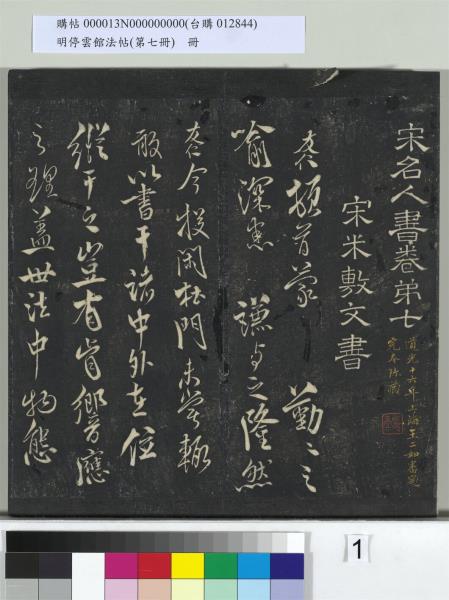 購帖 000013N000000000(台購 012844)
明停雲館法帖(第七冊) 冊
宋名人書卷弟七
道光十六年上海王二如書窗
宋米敷文書
友頓首蒙 勤〻之
喻深悉 謙与之隆然
友今投閑杜門未嘗輒
敢以書干諸中外在位
縱干之豈有肯響應
之理蓋世法中物態
1